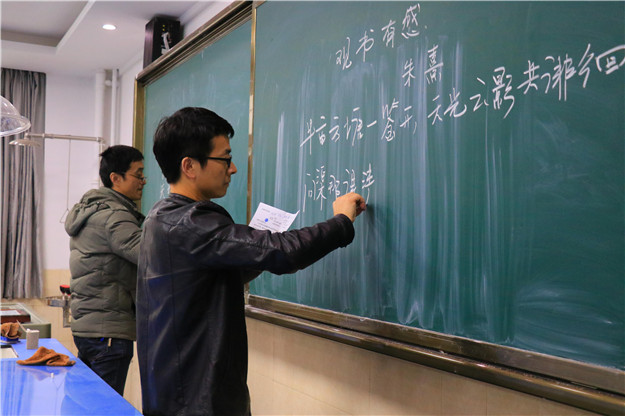 观书有感
朱熹
半亩方塘一鉴开,天光云影共徘徊
问渠那得清